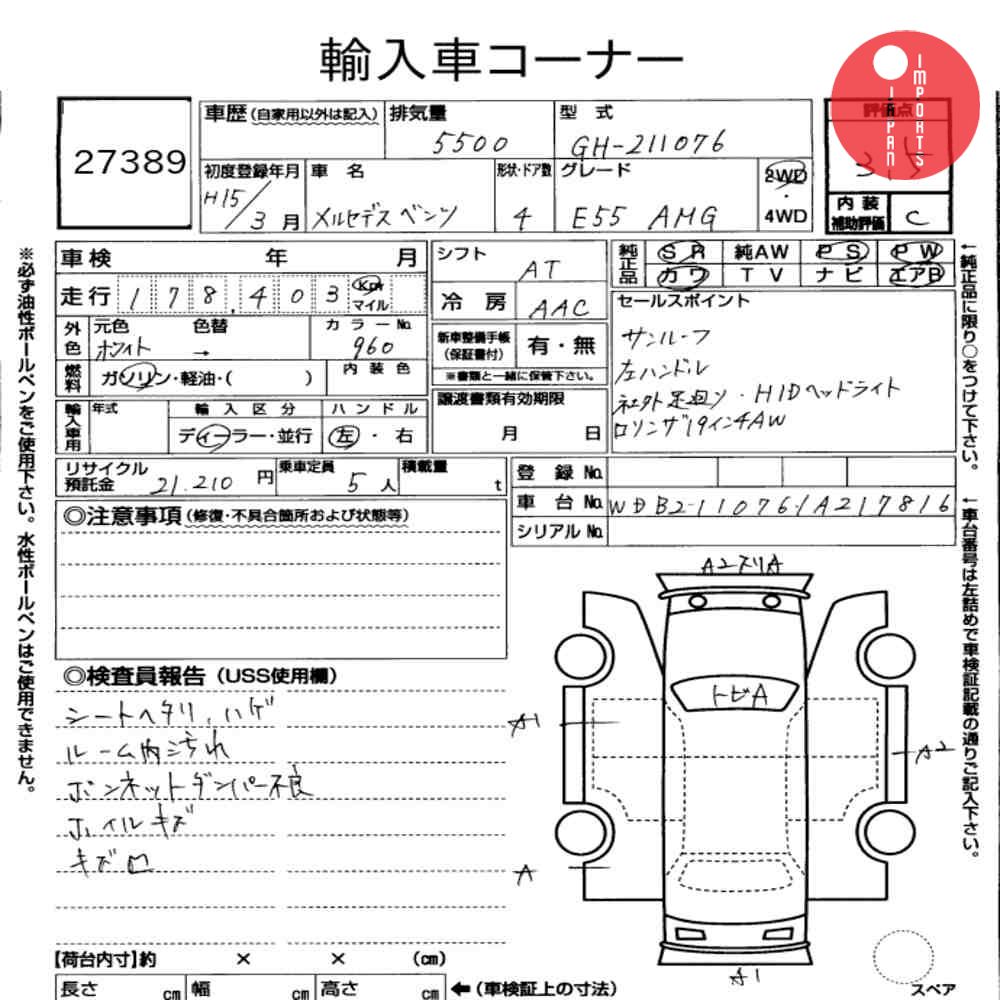 輸入車コーナー
IMPORTS JAPAN
27389
車歴(自家用以外は記入) 排気量 5500 型式 GH-211076 評価点 3.5
初度登録年月 H15/3月 車名 メルセデス ベンツ 形状・ドア数 4 グレード E55 AMG 2WD・4WD 内装補助評価 C
車検 年 月 シフト AT 純正品 SR 純AW PS PW
走行 178,403 Km マイル 冷房 AAC カワ TV ナビ エアB
外色 元色 ホワイト 色替 → カラーNo. 960 新車整備手帳(保証書付) 有・無 セールスポイント
※書類と一緒に保管下さい。
サンルーフ
左ハンドル
社外足廻り・HIDヘッドライト
ロリンザ19インチAW
燃料 ガソリン・軽油・( ) 内装色
譲渡書類有効期限 月 日
輸入車用 年式 輸入区分 ディーラー・並行 ハンドル 左・右
リサイクル預託金 21.210円 乗車定員 5人 積載量 t 登録No.
車台No. WDB2110761A217816
シリアルNo.
◎注意事項(修復・不具合箇所および状態等)
◎検査員報告(USS使用欄)
シートヘタリ、ハゲ
ルーム内汚れ
ボンネットダンパー不良
ホイルキズ
キズ凹
A2スリA
トビA
A1
A2
A
A1
スペア
【荷台内寸】約 × × (cm)
長さ cm 幅 cm 高さ cm ←(車検証上の寸法)
※必ず油性ボールペンをご使用下さい。水性ボールペンはご使用できません。
←純正品に限り○をつけて下さい。
←車台番号は左詰めで車検証記載の通りご記入下さい。